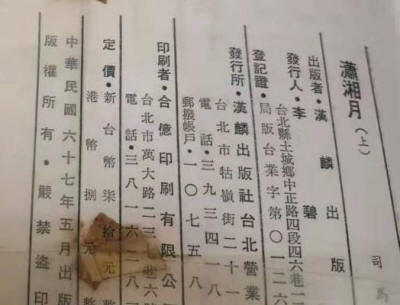 瀟湘月（上）
司馬
出版者・漢麟出版
發行人・李碧
台北縣土城鄉中正路四段四六巷二
登記證・局版台業字第０１２６
發行所・漢麟出版社台北營業
台北市牯嶺街二十一
電話・三九三四一八
郵撥帳戶・一〇七五八
印刷者・合億印刷有限公
台北市萬大路二三
電話・三八一六二八一
定價・新台幣柒拾元整
港幣捌元整
中華民國六十七年五月出版
版權所有・嚴禁盜印